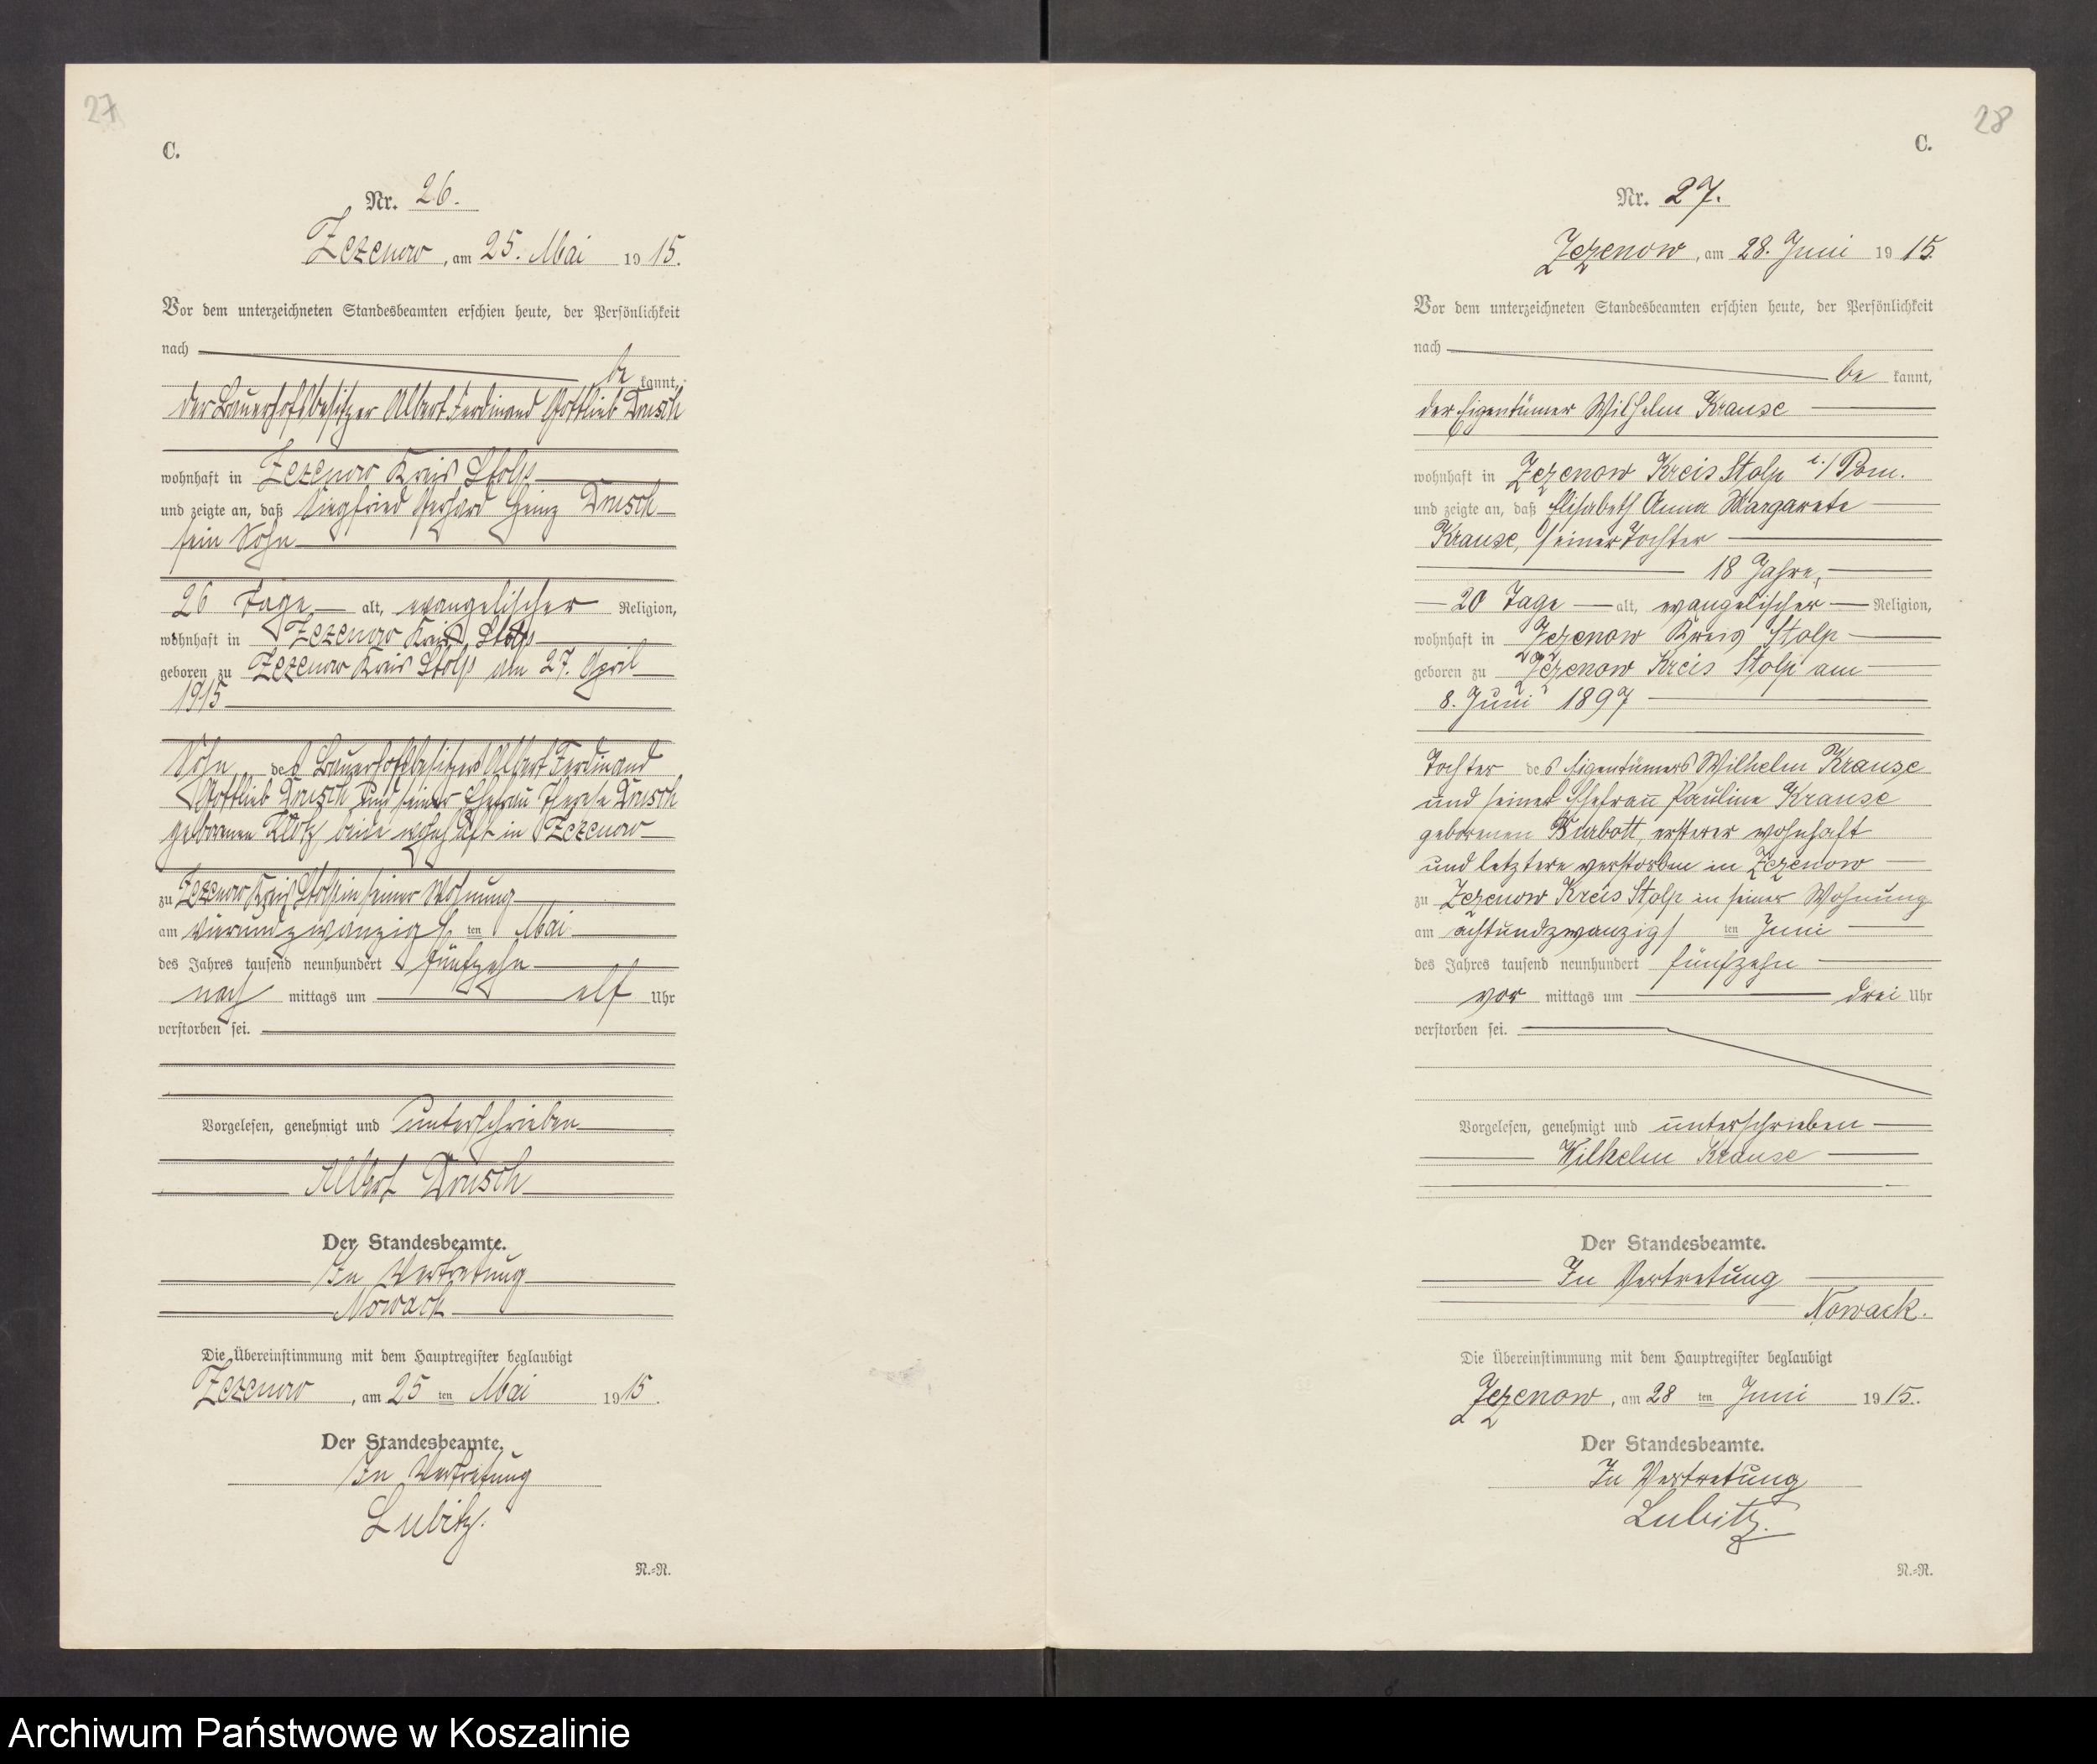 27
C.
Nr. 26.
Zezenow, am 25. Mai 1915.
Vor dem unterzeichneten Standesbeamten erschien heute, der Persönlichkeit
nach
be kannt,
der Bauerhofsbesitzer Albert Ferdinand Gottlieb
wohnhaft in Zezenow Kreis Stolp
und zeigte an, daß Siegfried Gerhard Heinz
sein Sohn
26 Tage alt, evangelischer Religion,
wohnhaft in Zezenow Kreis Stolp
geboren zu Zezenow Kreis Stolp am 27. April
1915
Sohn des Bauerhofsbesitzers Albert Ferdinand
Gottlieb und seiner Ehefrau Therese
geborenen Klotz beide wohnhaft in Zezenow
zu Zezenow Kreis Stolp in seiner Wohnung
am vierundzwanzigs ten Mai
des Jahres tausend neunhundert fünfzehn
nach mittags um elf Uhr
verstorben sei.
Vorgelesen, genehmigt und unterschrieben
Albert
Der Standesbeamte.
In Vertretung
Nowack
Die Übereinstimmung mit dem Hauptregister beglaubigt
Zezenow, am 25 ten Mai 1915.
Der Standesbeamte.
In Vertretung
Lubitz.
N.=N.
28
C.
Nr. 27.
Zezenow, am 28. Juni 1915.
Vor dem unterzeichneten Standesbeamten erschien heute, der Persönlichkeit
nach
be kannt,
der Eigentümer Wilhelm Krause
wohnhaft in Zezenow Kreis Stolp i./Pom.
und zeigte an, daß Elisabeth Anna Margarete
Krause, seiner Tochter
18 Jahre,
20 Tage alt, evangelischer Religion,
wohnhaft in Zezenow Kreis Stolp
geboren zu Zezenow Kreis Stolp am
8. Juni 1897
Tochter des Eigentümers Wilhelm Krause
und seiner Ehefrau Pauline Krause
geborenen ersterer wohnhaft
und letztere verstorben in Zezenow
zu Zezenow Kreis Stolp in seiner Wohnung
am achtundzwanzigs ten Juni
des Jahres tausend neunhundert fünfzehn
vor mittags um drei Uhr
verstorben sei.
Vorgelesen, genehmigt und unterschrieben
Wilhelm Krause
Der Standesbeamte.
In Vertretung
Nowack.
Die Übereinstimmung mit dem Hauptregister beglaubigt
Zezenow, am 28 ten Juni 1915.
Der Standesbeamte.
In Vertretung
Lubitz.
N.=N.
Archiwum Państwowe w Koszalinie